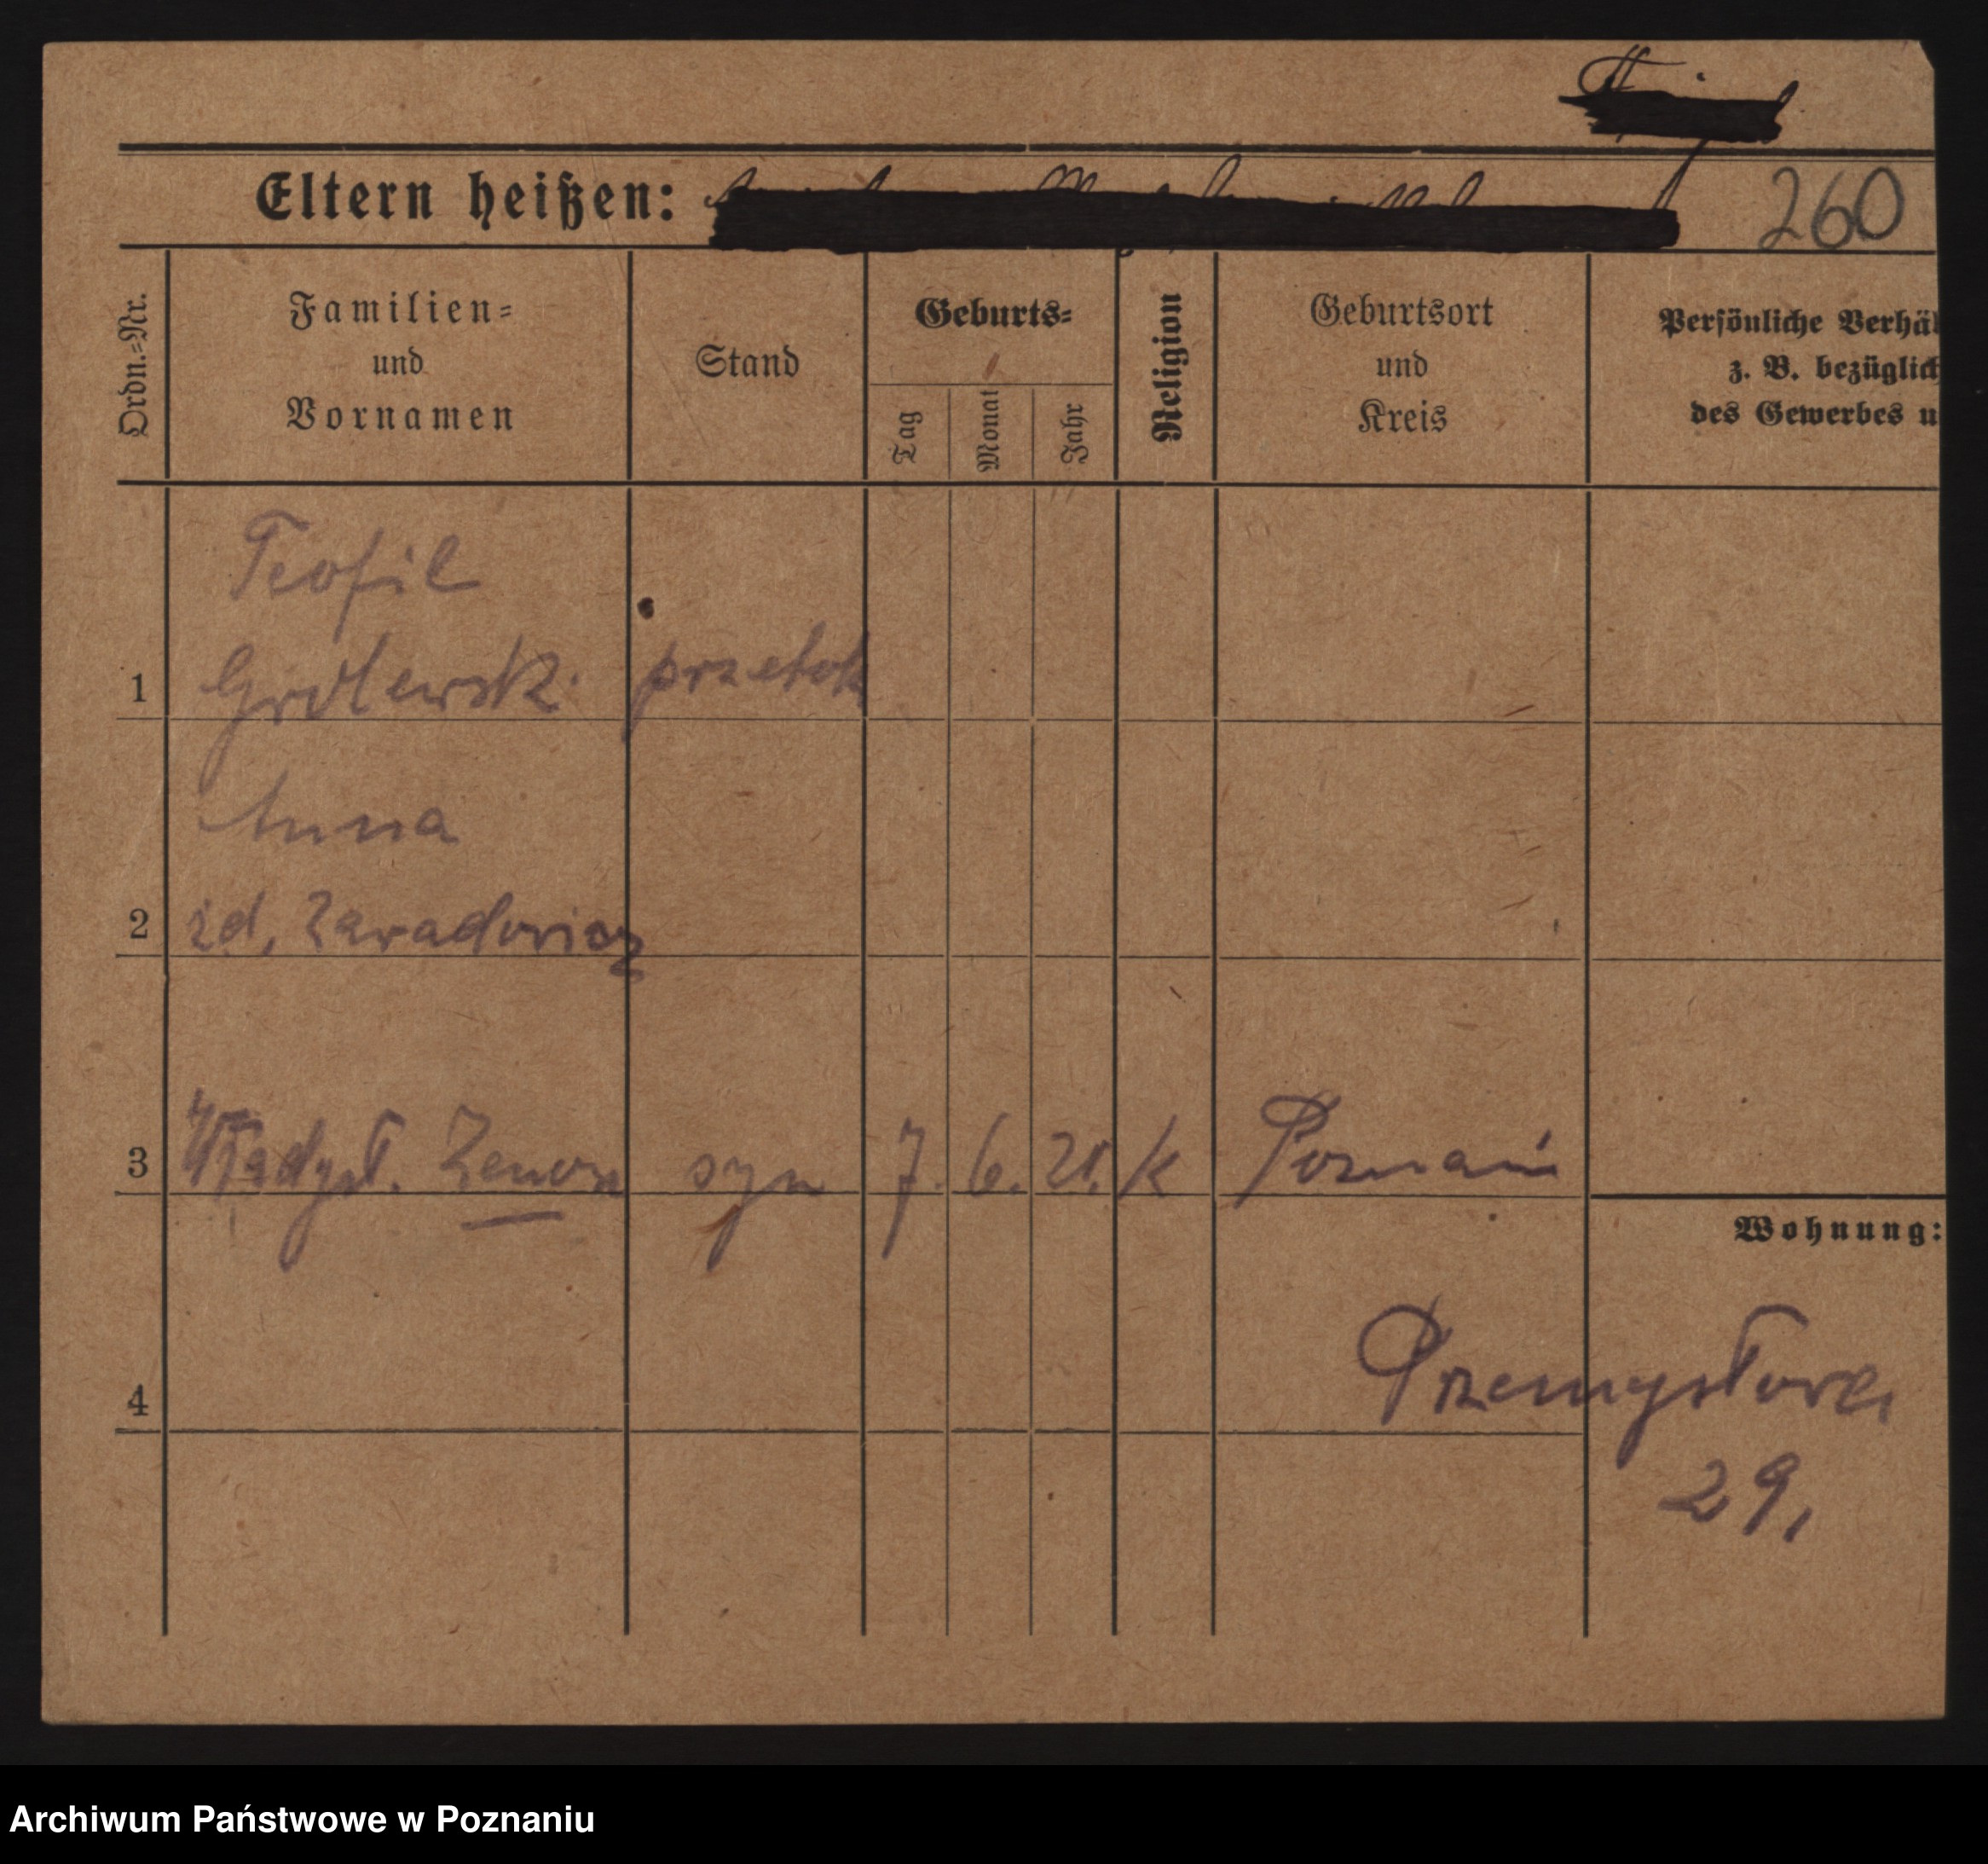 Eltern heißen:
260
Ordn.=Nr.
Familien=
und
Vornamen
Stand
Geburts=
Tag
Monat
Jahr
Religion
Geburtsort
und
Kreis
Persönliche Verhäl
z. B. bezüglich
des Gewerbes u
Teofil
1
przetok
Anna
2
3 Władysł. Zenon syn 7. 6. 21. k Poznań
Wohnung:
4
Przemysłowa
29,
Archiwum Państwowe w Poznaniu